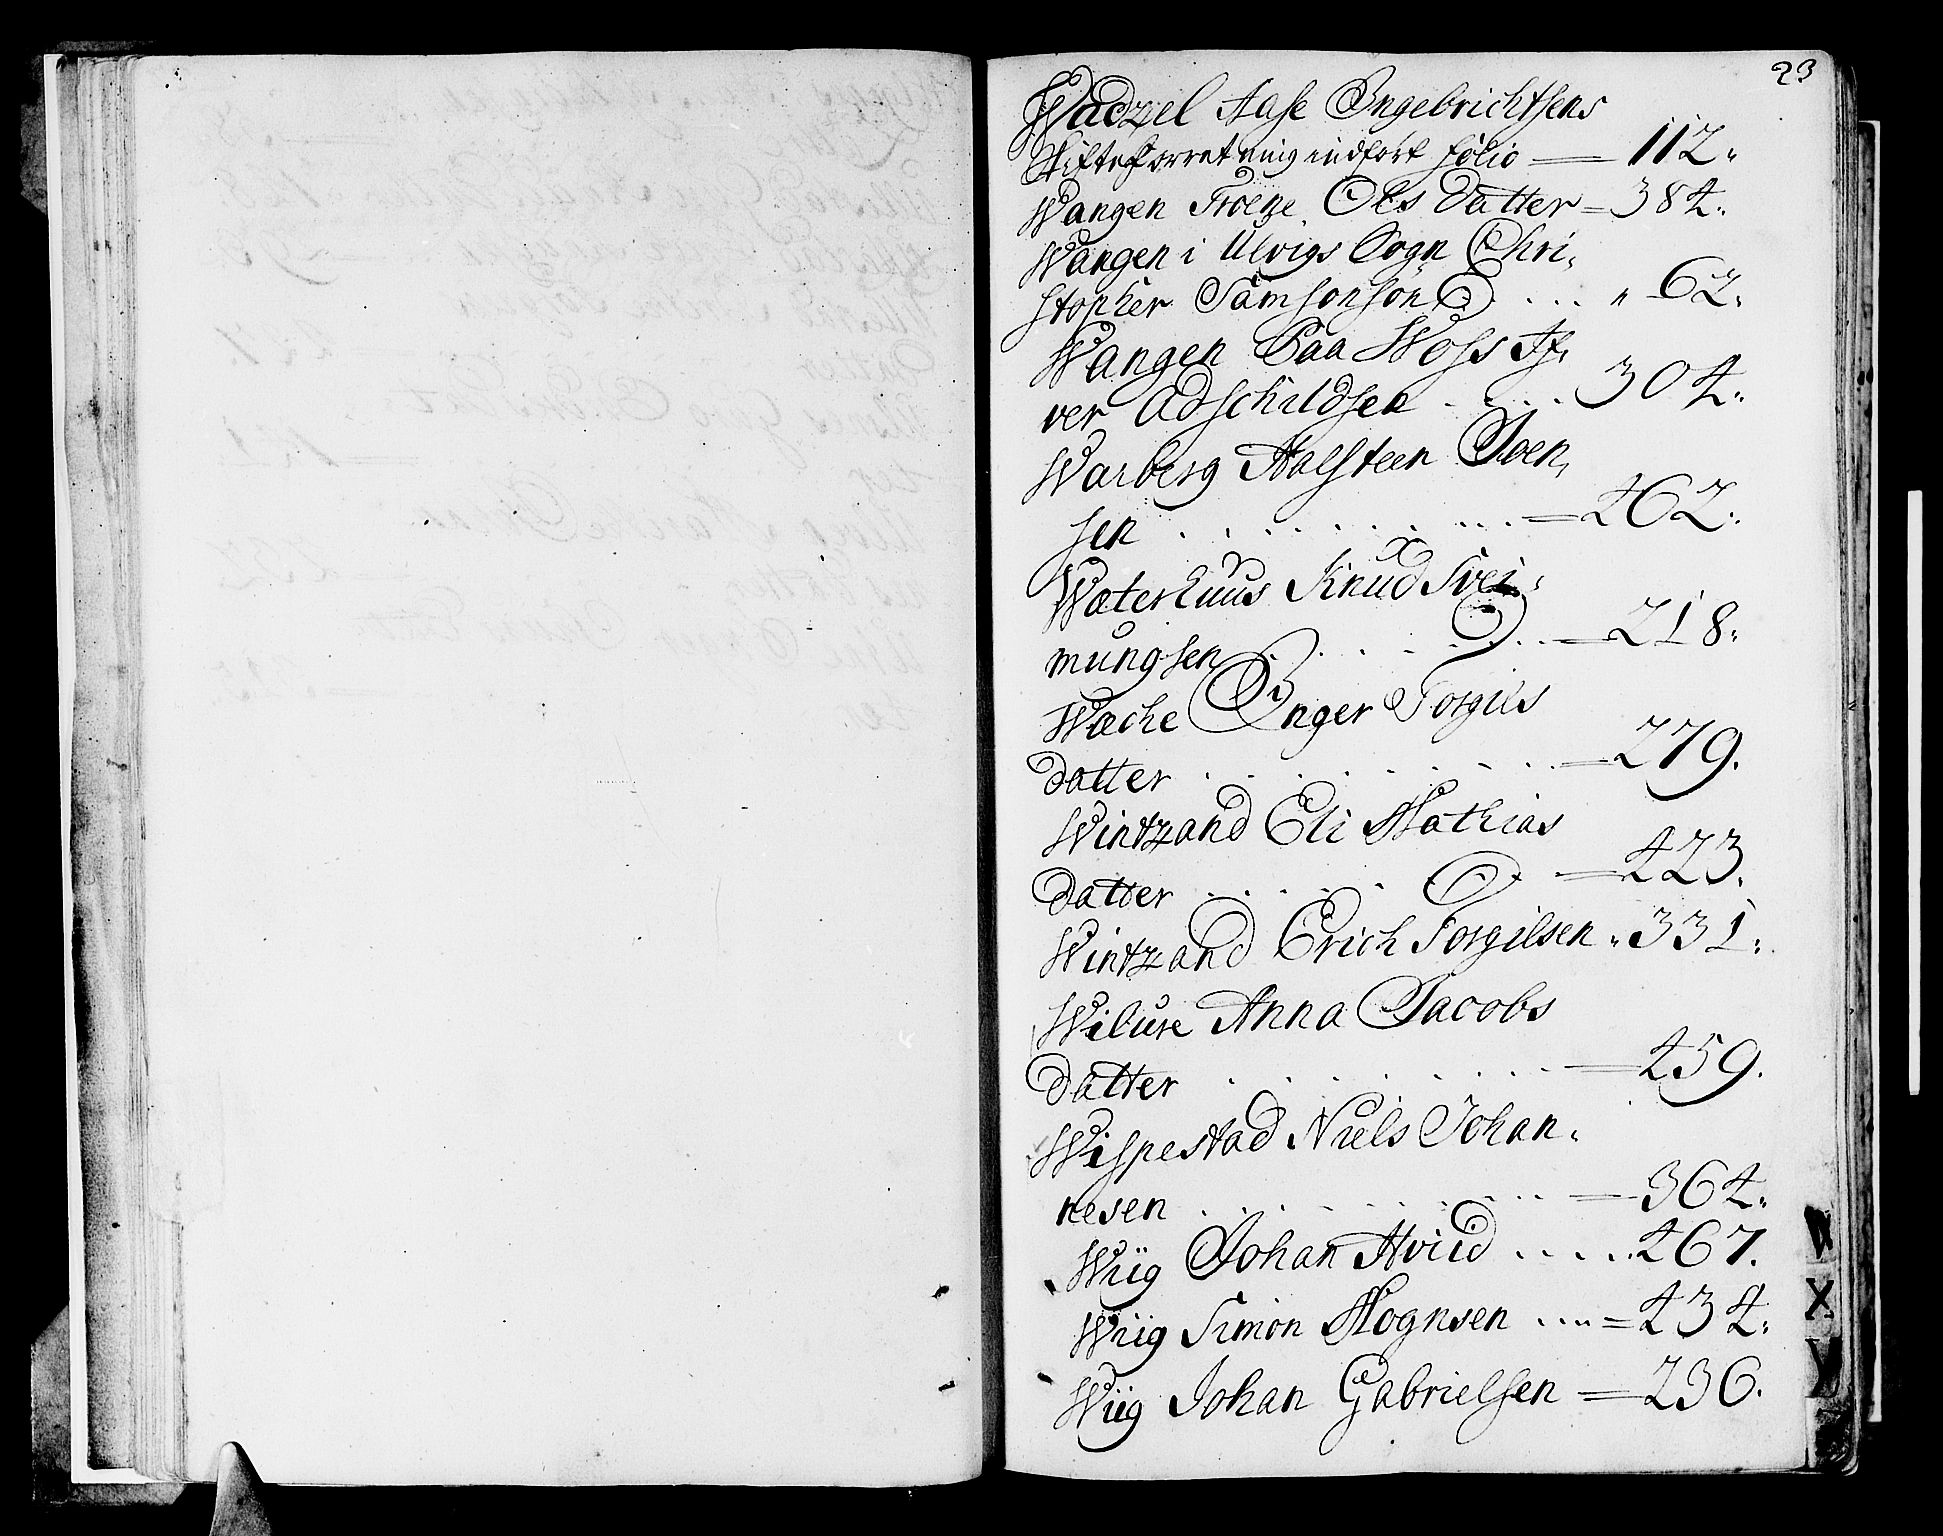 23
Wadzel Aase Engebrichtsens
Skifteforretning indfört folio — 112.
Wangen Troene Ols Datter = 384.
Wangen i Ulvigs Sogn Chri,
stopher Samsonson . . . „ 62.
Wangen Paa Woss If,
ver Adschildsen . . . . 304.
Warberg Halsteen Iven,
sen . . . . . . . . = 462.
Wæterhuus Knud Svei,
mungsen . . . . . = 218.
Wæche Inger Torgils
datter . . . . . . . = 279.
Wintzand Eli Mathias
datter . . . . . = 423.
Wintzand Erich Torgilsen „ 331.
Wilure Anna Jacobs
datter . . . . . . . = 459.
Wispestad Niels Johan,
nesen . . . . . . . = 364.
Wiig Johan Hviid . . . . . 467.
Wiig Simon Mognsen .... = 434.
Wiig Johan Gabrielsen = 236.
W
X
Y